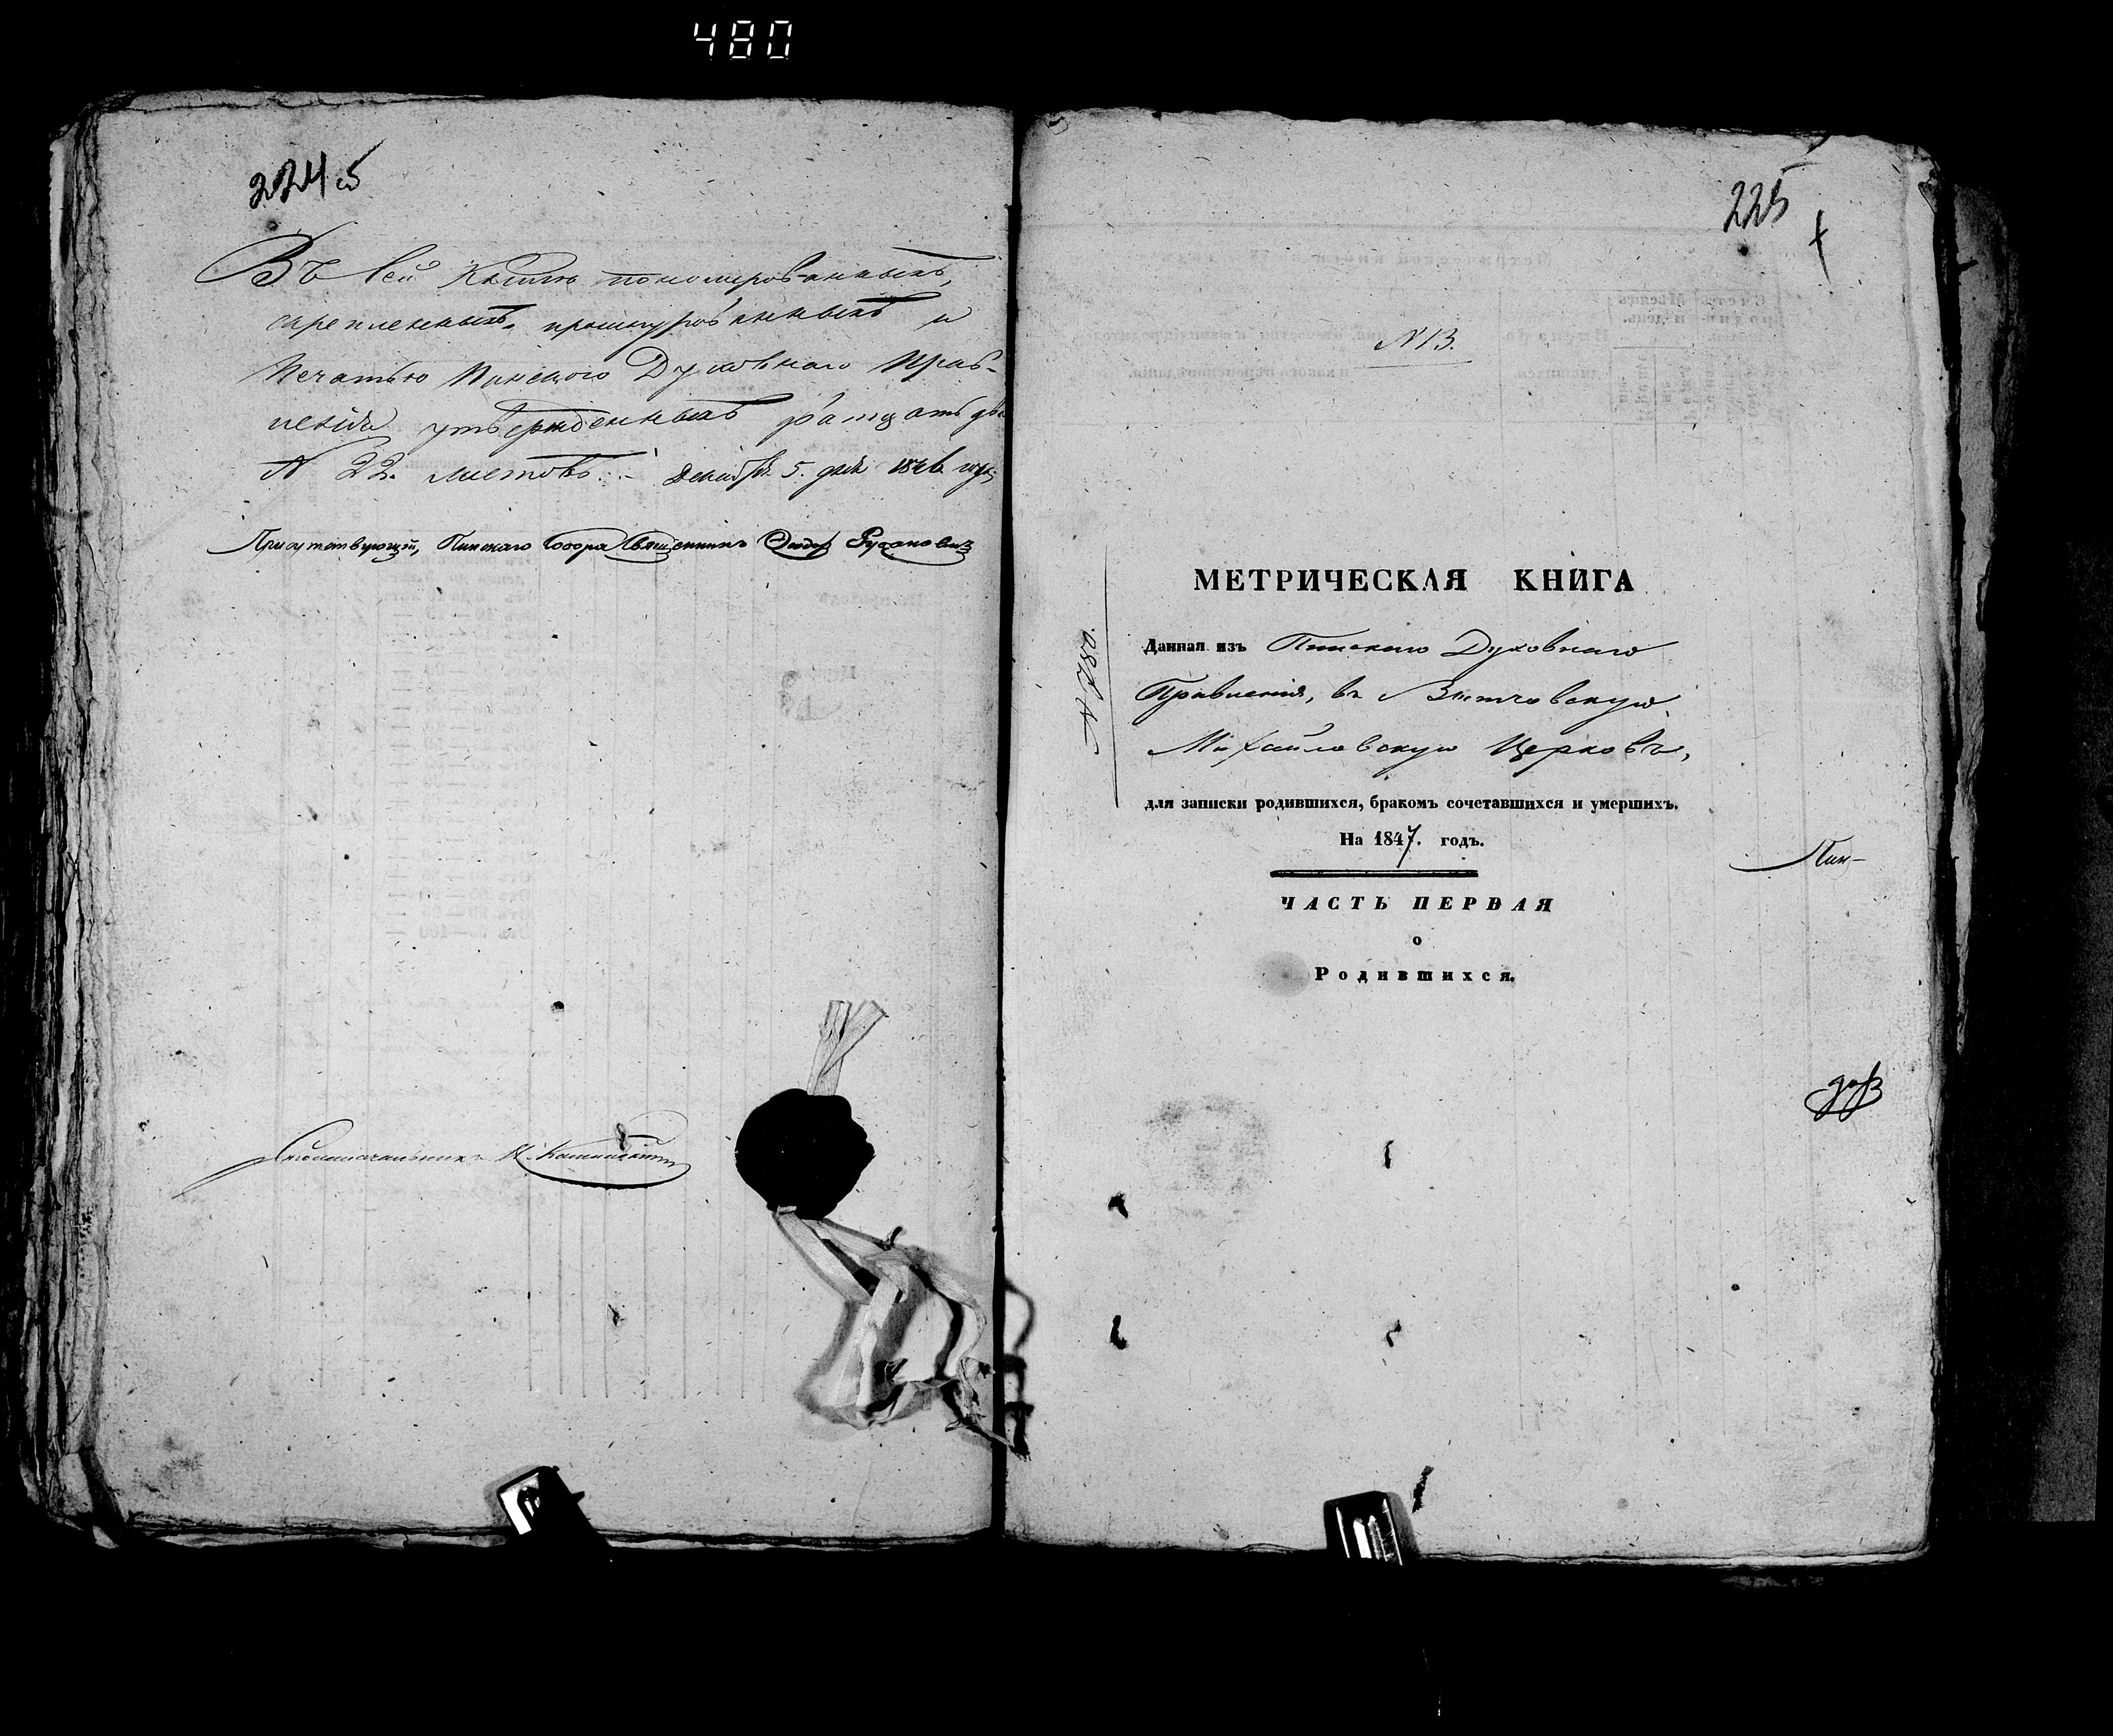 480
224 об
Въ сей Книгѣ пономерованныхъ,
скрепленныхъ, прошнурованныхъ и
Печатью Пинскаго Духовнаго Прав-
ленія утвержденныхъ
N 22. листовъ. Декабря 5. дня 1846 года
Присутствующій, Пинскаго Собора Священникъ Ѳеодор
Столоначальникъ
225
N 13.
МЕТРИЧЕСКАЯ КНИГА
Данная изъ Пинскаго Духовнаго
Правленія, въ Вятчовскую
Михайловскую Церковь,
для записки родившихся, бракомъ сочетавшихся и умершихъ.
На 1847. годъ.
ЧАСТЬ ПЕРВАЯ
о
Родившихся.
Пин-